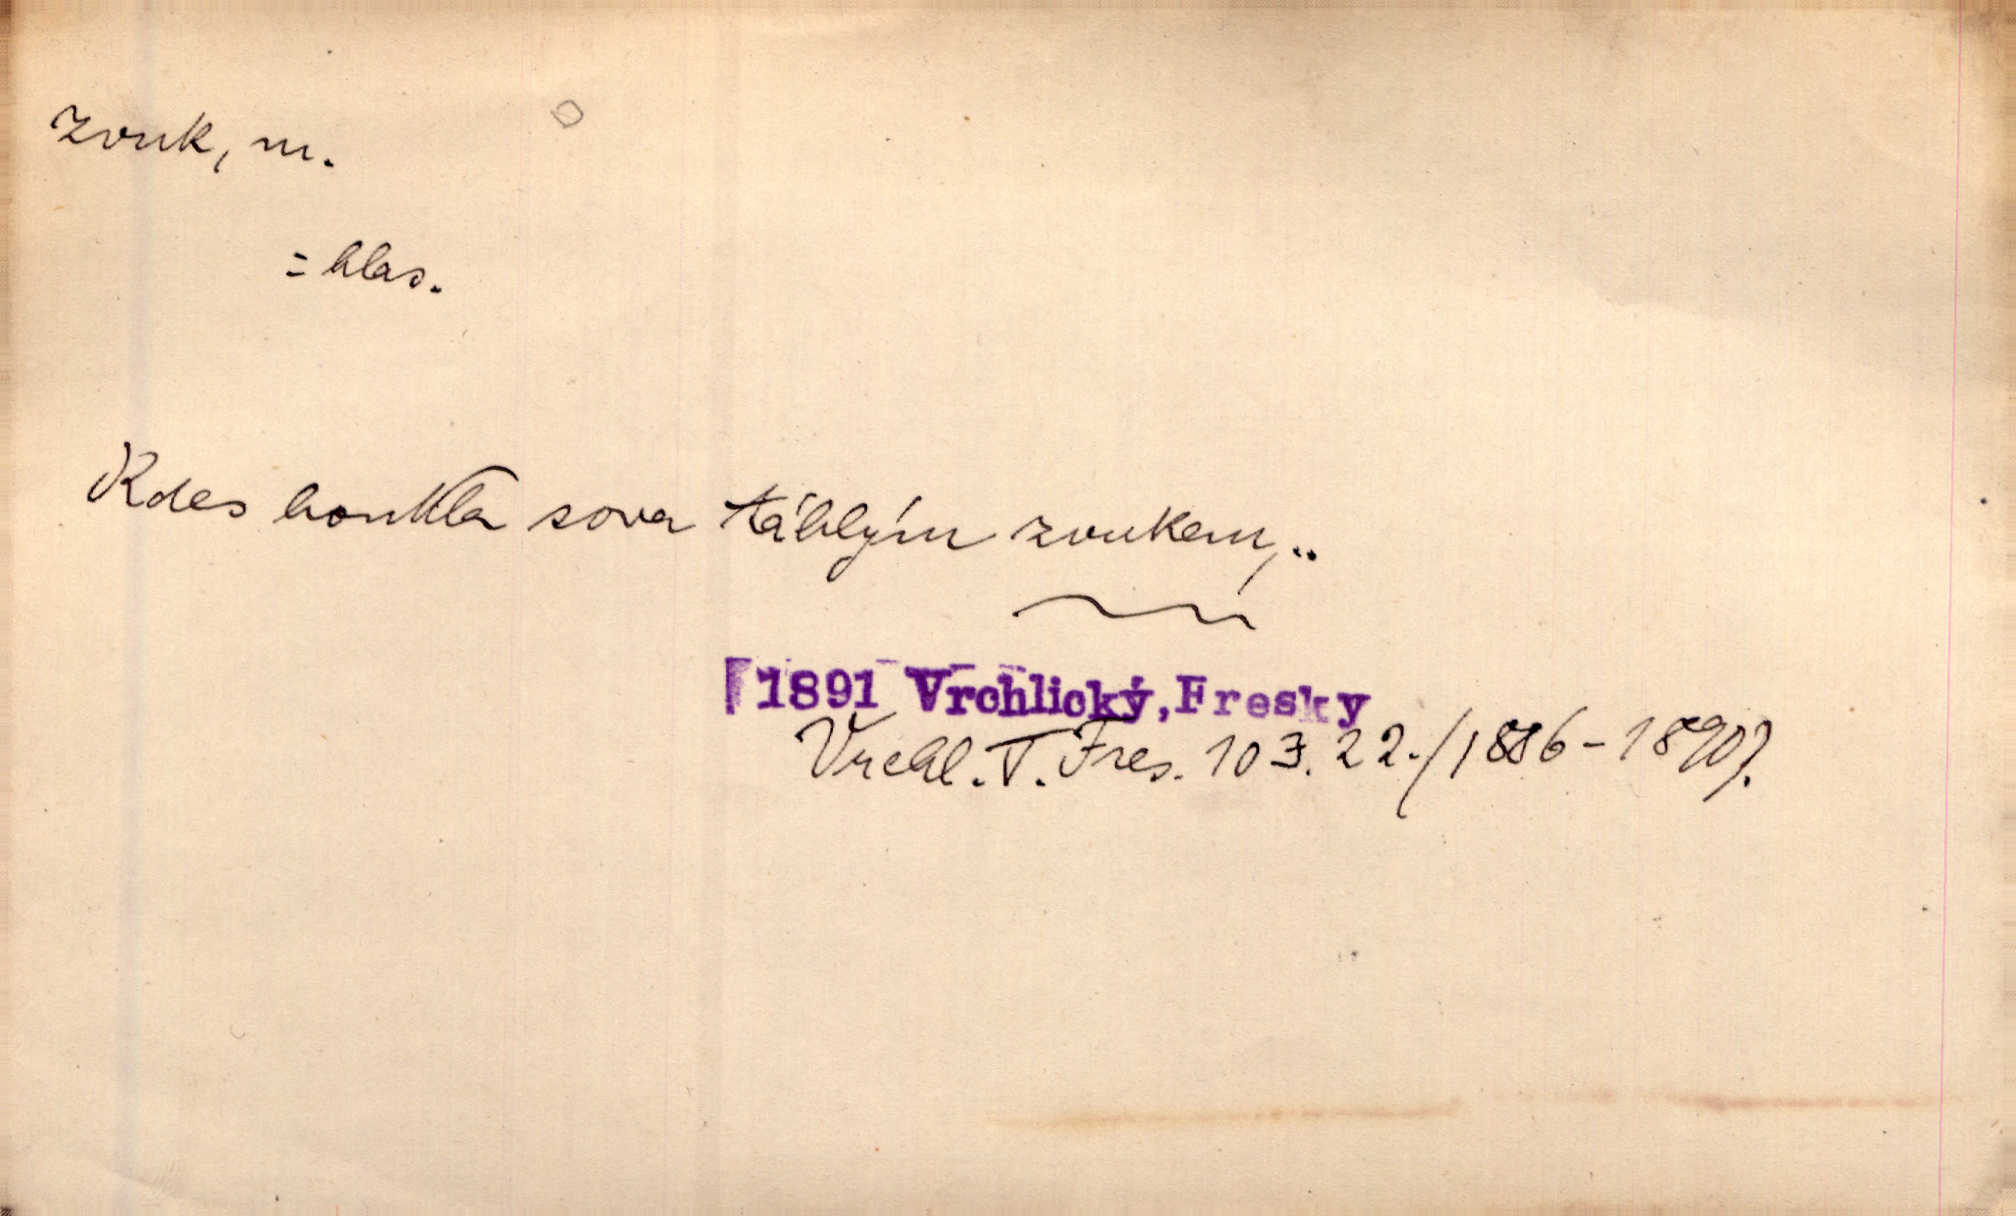 zvuk, m.
= hlas.
Kdes houkla sova táhlým zvukem,..
1891 Vrchlický, Fresky
Vrchl. T. Fres. 103. 22./1886-1890/.